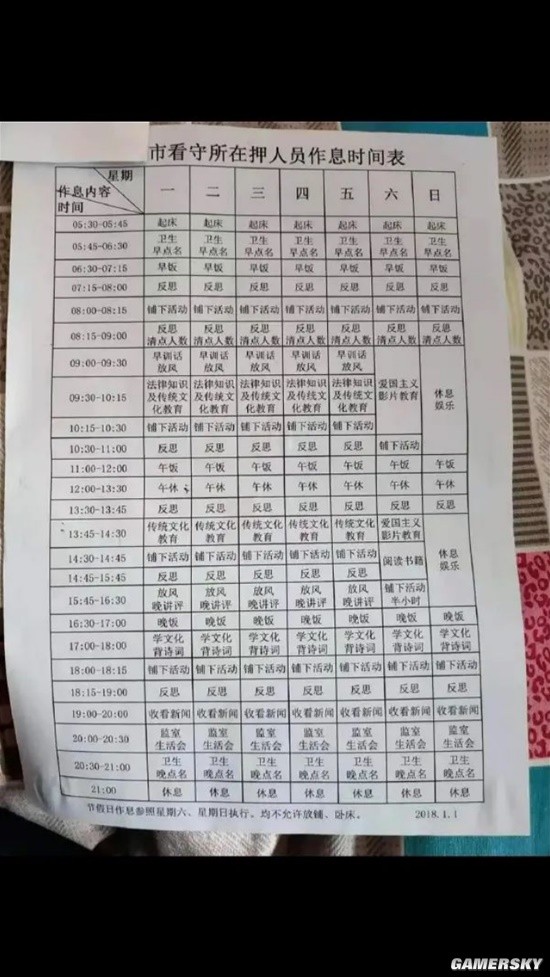 市看守所在押人员作息时间表
星期
作息内容
时间
一 二 三 四 五 六 日
05:30-05:45 起床 起床 起床 起床 起床 起床 起床
05:45-06:30 卫生早点名 卫生早点名 卫生早点名 卫生早点名 卫生早点名 卫生早点名 卫生早点名
06:30-07:15 早饭 早饭 早饭 早饭 早饭 早饭 早饭
07:15-08:00 反思 反思 反思 反思 反思 反思 反思
08:00-08:15 铺下活动 铺下活动 铺下活动 铺下活动 铺下活动 铺下活动 铺下活动
08:15-09:00 反思清点人数 反思清点人数 反思清点人数 反思清点人数 反思清点人数 反思清点人数 反思清点人数
09:00-09:30 早训话放风 早训话放风 早训话放风 早训话放风 早训话放风 爱国主义影片教育 休息娱乐
09:30-10:15 法律知识及传统文化教育 法律知识及传统文化教育 法律知识及传统文化教育 法律知识及传统文化教育 法律知识及传统文化教育
10:15-10:30 铺下活动 铺下活动 铺下活动 铺下活动 铺下活动
10:30-11:00 反思 反思 反思 反思 反思 铺下活动
11:00-12:00 午饭 午饭 午饭 午饭 午饭 午饭 午饭
12:00-13:30 午休 午休 午休 午休 午休 午休 午休
13:30-13:45 反思 反思 反思 反思 反思 反思 反思
13:45-14:30 传统文化教育 传统文化教育 传统文化教育 传统文化教育 传统文化教育 爱国主义影片教育 休息娱乐
14:30-14:45 铺下活动 铺下活动 铺下活动 铺下活动 铺下活动 阅读书籍
14:45-15:45 反思 反思 反思 反思 反思
15:45-16:30 放风晚讲评 放风晚讲评 放风晚讲评 放风晚讲评 放风晚讲评 铺下活动半小时
16:30-17:00 晚饭 晚饭 晚饭 晚饭 晚饭 晚饭 晚饭
17:00-18:00 学文化背诗词 学文化背诗词 学文化背诗词 学文化背诗词 学文化背诗词 学文化背诗词 学文化背诗词
18:00-18:15 铺下活动 铺下活动 铺下活动 铺下活动 铺下活动 铺下活动 铺下活动
18:15-19:00 反思 反思 反思 反思 反思 反思 反思
19:00-20:00 收看新闻 收看新闻 收看新闻 收看新闻 收看新闻 收看新闻 收看新闻
20:00-20:30 监室生活会 监室生活会 监室生活会 监室生活会 监室生活会 监室生活会 监室生活会
20:30-21:00 卫生晚点名 卫生晚点名 卫生晚点名 卫生晚点名 卫生晚点名 卫生晚点名 卫生晚点名
21:00 休息 休息 休息 休息 休息 休息 休息
节假日作息参照星期六、星期日执行。均不允许放铺、卧床。 2018.1.1
GAMERSKY